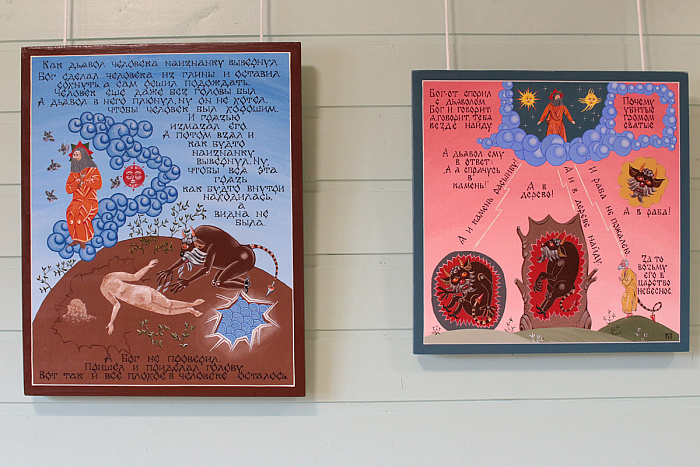 Как дьявол человека наизнанку вывернул
Бог сделал человека из глины и оставил
сохнуть, а сам решил подождать.
Человек ещё даже без головы был.
А дьявол в него плюнул, ну он не хотел,
чтобы человек был хорошим.
И грязью
измазал его.
А потом взял и
как будто
наизнанку
вывернул. Ну,
чтобы вся эта
грязь
как будто внутри
находилась,
а
видна не
была.
А Бог не проверил.
Пришёл и приделал голову.
Вот так и всё плохое в человеке осталось.
Бог-от спорил
с дьяволом
Бог и говорит:
А, говорит, тебя
везде найду
Почему
убитые
громом
святые
А дьявол ему
в ответ:
"А я спрячусь
в
камень!"
А и камень расшибу!
А в
дерево!
А и в дереве найду
И раба не пожалею,
А в раба!
за то
возьму
его в
царство
небесное